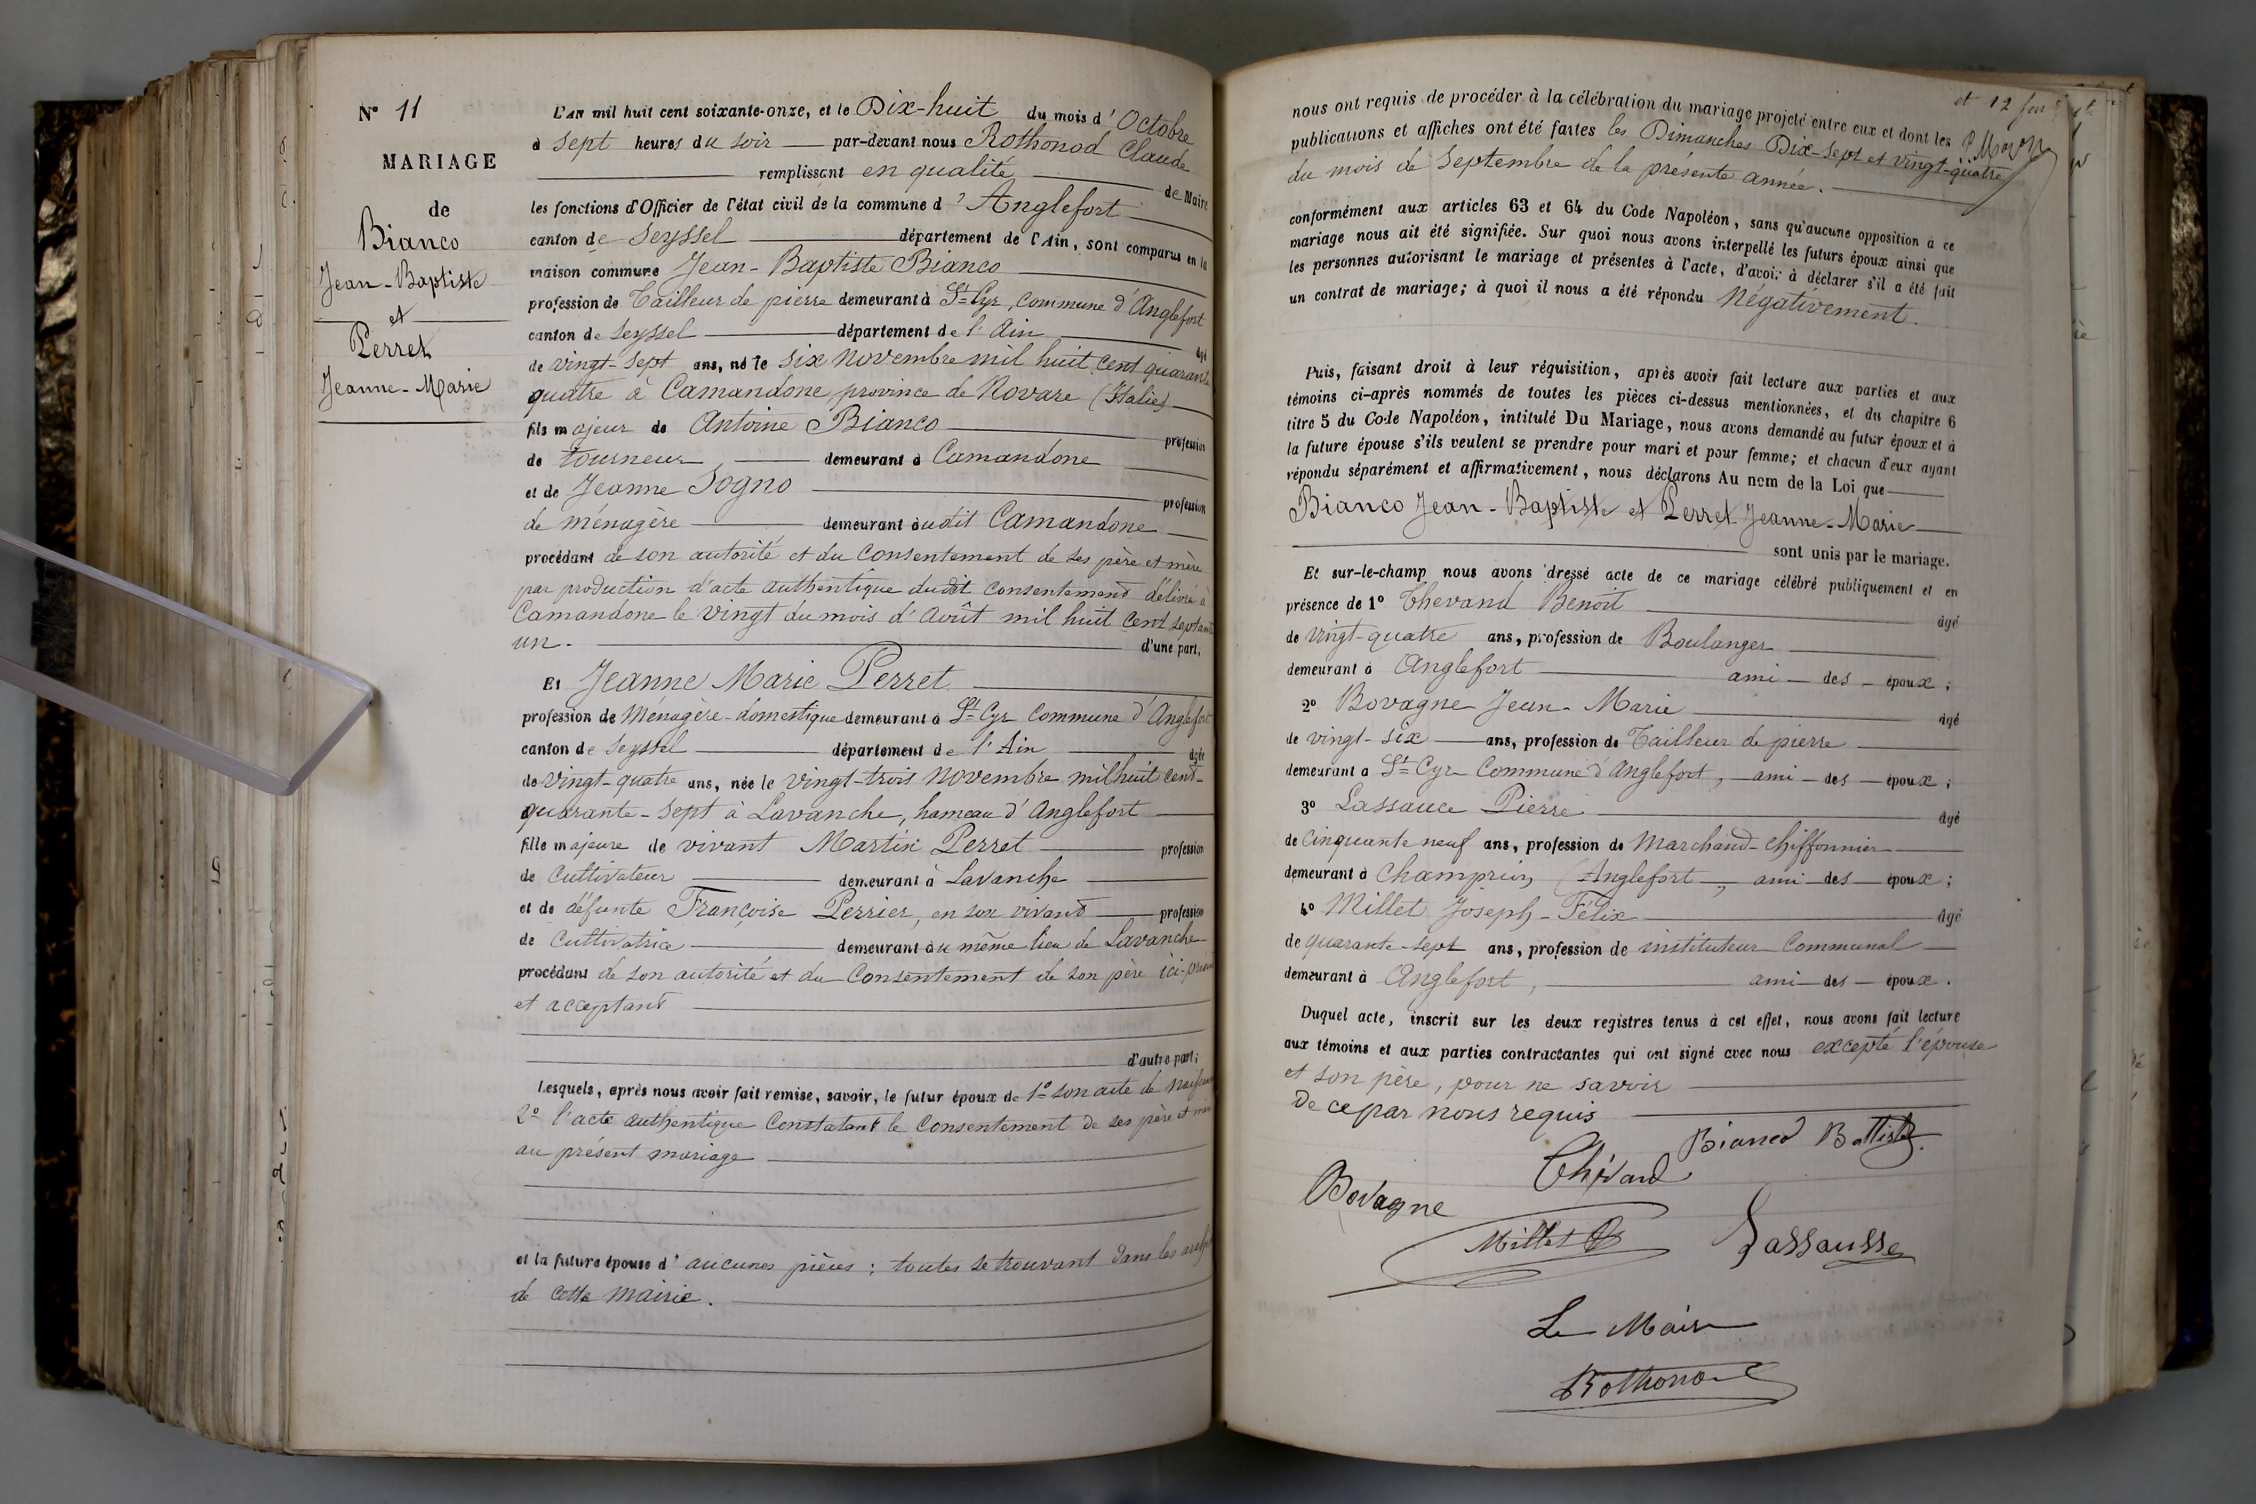 N° 11
MARIAGE
de
Bianco
Jean-Baptiste
et
Perret
Jeanne-Marie
L'an mil huit cent soixante-onze, et le Dix-huit du mois d'Octobre
à sept heures du soir par-devant nous Rothonod Claude
remplissant en qualité de Maire
les fonctions d'Officier de l'état civil de la commune d'Anglefort
canton de Seyssel département de l'Ain, sont comparus en la
maison commune Jean-Baptiste Bianco
profession de Tailleur de pierre demeurant à St-Cyr, commune d'Anglefort
canton de Seyssel département de l'Ain âgé
de vingt-sept ans, né le six novembre mil huit cent quarante
quatre à Camandone province de Novare (Italie)
fils majeur de Antoine Bianco profession
de tourneur demeurant à Camandone
et de Jeanne Sogno profession
de ménagère demeurant audit Camandone
procédant de son autorité et du consentement de ses père et mère
par production d'acte authentique dudit consentement délivré à
Camandone le vingt du mois d'Août mil huit cent septante
un. d'une part,
Et Jeanne Marie Perret
profession de Ménagère-domestique demeurant à St-Cyr Commune d'Anglefort
canton de Seyssel département de l'Ain âgée
de vingt-quatre ans, née le vingt-trois novembre mil huit cent-
quarante-sept à Lavanche, hameau d'Anglefort
fille majeure de vivant Martin Perret profession
de cultivateur demeurant à Lavanche
et de défunte Françoise Perrier, en son vivant profession
de cultivatrice demeurant au même lieu de Lavanche
procédant de son autorité et du consentement de son père ici-présent
et acceptant
d'autre part;
Lesquels, après nous avoir fait remise, savoir, le futur époux de 1° son acte de naissance
2° l'acte authentique constatant le consentement de ses père et mère
au présent mariage
et la future épouse d'aucunes pièces; toutes se trouvant dans les archives
de cette Mairie.
et 12 fev
nous ont requis de procéder à la célébration du mariage projeté entre eux et dont les
publications et affiches ont été faites les Dimanches Dix-sept et vingt-quatre
du mois de septembre de la présente année.
conformément aux articles 63 et 64 du Code Napoléon, sans qu'aucune opposition à ce
mariage nous ait été signifiée. Sur quoi nous avons interpellé les futurs époux ainsi que
les personnes autorisant le mariage et présentes à l'acte, d'avoir à déclarer s'il a été fait
un contrat de mariage; à quoi il nous a été répondu Négativement.
Puis, faisant droit à leur réquisition, après avoir fait lecture aux parties et aux
témoins ci-après nommés de toutes les pièces ci-dessus mentionnées, et du chapitre 6
titre 5 du Code Napoléon, intitulé Du Mariage, nous avons demandé au futur époux et à
la future épouse s'ils veulent se prendre pour mari et pour femme; et chacun d'eux ayant
répondu séparément et affirmativement, nous déclarons Au nom de la Loi que
Bianco Jean-Baptiste et Perret Jeanne-Marie
sont unis par le mariage.
Et sur-le-champ nous avons dressé acte de ce mariage célébré publiquement et en
présence de 1° Thevand Benoît âgé
de vingt-quatre ans, profession de Boulanger
demeurant à Anglefort ami des époux;
2° Bovagne Jean-Marie âgé
de vingt-six ans, profession de Tailleur de pierre
demeurant à St-Cyr Commune d'Anglefort, ami des époux;
3° Lassauce Pierre âgé
de cinquante neuf ans, profession de Marchand-chiffonnier
demeurant à Champriin (Anglefort, ami des époux;
4° Millet Joseph-Félix âgé
de quarante-sept ans, profession de instituteur Communal
demeurant à Anglefort, ami des époux.
Duquel acte, inscrit sur les deux registres tenus à cet effet, nous avons fait lecture
aux témoins et aux parties contractantes qui ont signé avec nous excepté l'épouse
et son père, pour ne savoir
De ce par nous requis
Bianco Battista
Thévand
Bovagne
Millet
Lassausse
Le Maire
Rothonod